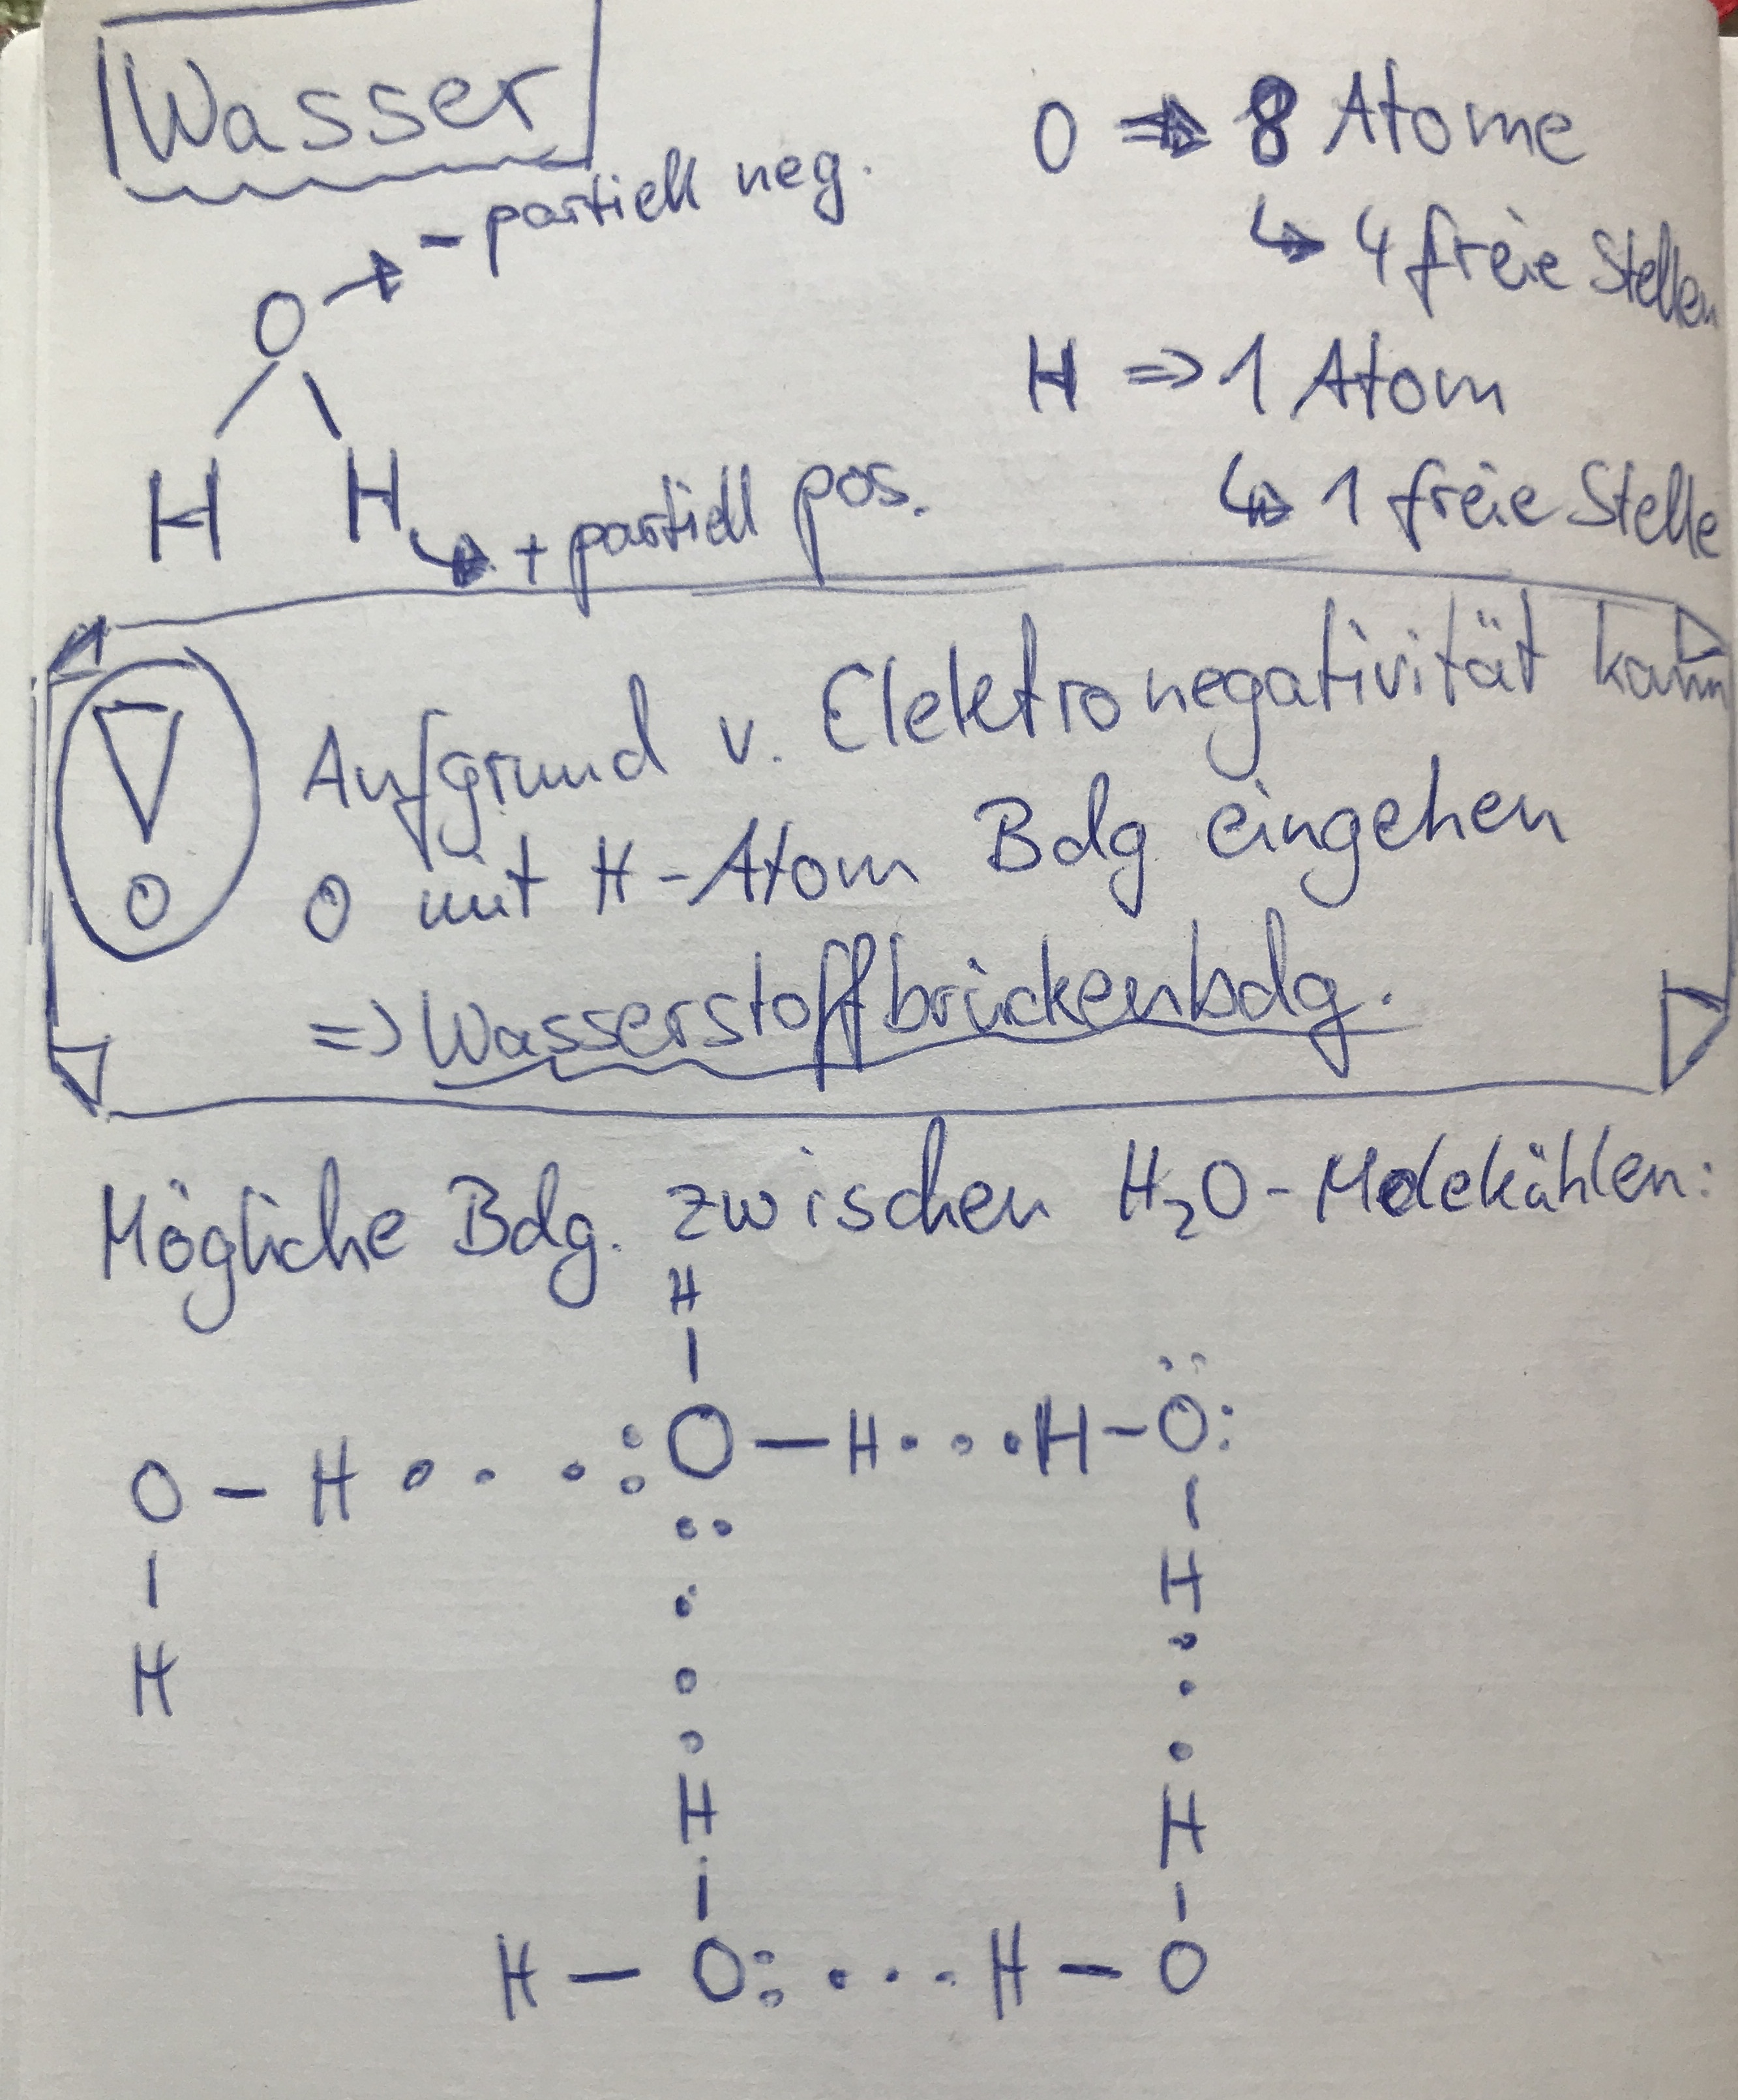 Wasser
- partiell neg.
O
H H
+ partiell pos.
O => 8 Atome
↳ 4 freie Stellen
H => 1 Atom
↳ 1 freie Stelle
! Aufgrund v. Elektronegativität kann
O mit H-Atom Bdg eingehen
=> Wasserstoffbrückenbdg.
Mögliche Bdg. zwischen H₂O-Molekählen:
H
O - H . . . :O - H . . . H - O:
H H
H H
H - O: . . . H - O